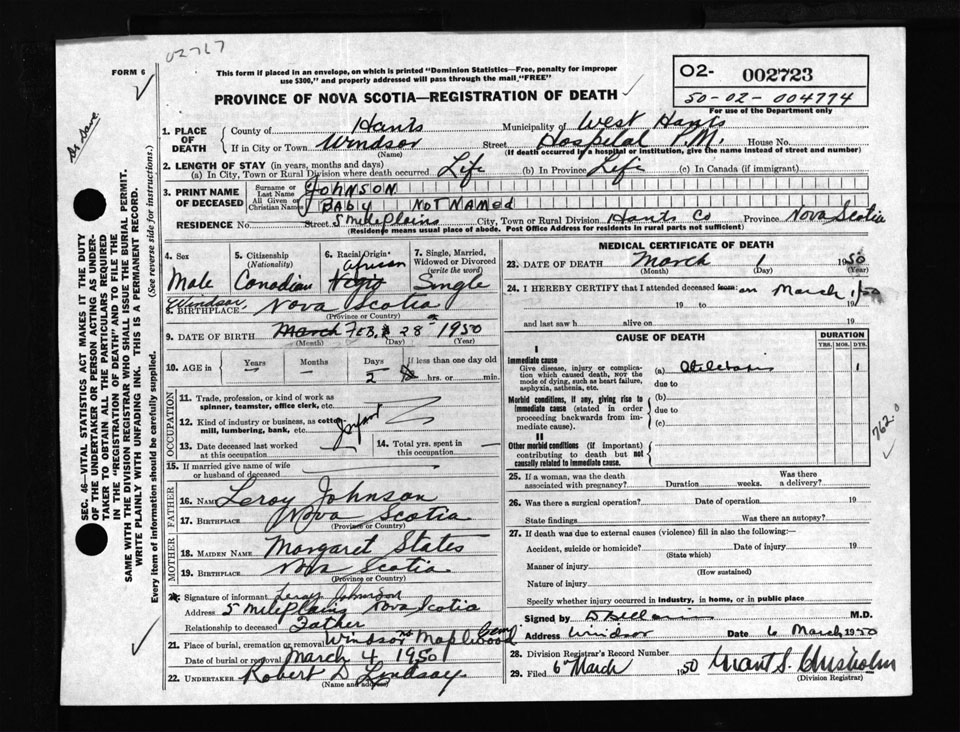 02767
FORM 6
This form if placed in an envelope, on which is printed "Dominion Statistics—Free, penalty for improper
use $300," and properly addressed will pass through the mail "FREE"
PROVINCE OF NOVA SCOTIA—REGISTRATION OF DEATH
02- 002723
50-02-004774
For use of the Department only
1. PLACE OF DEATH
County of Hants Municipality of West Hants
If in City or Town Windsor Street Hospital P.M. House No.
(Name) (If death occurred in a hospital or institution, give the name instead of street and number)
2. LENGTH OF STAY (in years, months and days)
(a) In City, Town or Rural Division where death occurred Life (b) In Province Life (c) In Canada (if immigrant)
3. PRINT NAME OF DECEASED
Surname or Last Name JOHNSON
All Given or Christian Names BABY NOT NAMED
RESIDENCE No. Street 5 Mile Plains City, Town or Rural Division Hants Co Province Nova Scotia
(Residence means usual place of abode. Post Office Address for residents in rural parts not sufficient)
4. Sex Male
5. Citizenship (Nationality) Canadian
6. Racial Origin African Negro
7. Single, Married, Widowed or Divorced (write the word) Single
8. BIRTHPLACE Windsor Nova Scotia
(Province or Country)
9. DATE OF BIRTH March FEB. 28 1950
(Month) (Day) (Year)
10. AGE in Years Months Days 2 If less than one day old hrs. or min.
OCCUPATION
11. Trade, profession, or kind of work as spinner, teamster, office clerk, etc.
12. Kind of industry or business, as cotton mill, lumbering, bank, etc. Infant
13. Date deceased last worked at this occupation
14. Total yrs. spent in this occupation
15. If married give name of wife or husband of deceased
FATHER
16. NAME Leroy Johnson
17. BIRTHPLACE Nova Scotia
(Province or Country)
MOTHER
18. MAIDEN NAME Margaret States
19. BIRTHPLACE Nova Scotia
(Province or Country)
Signature of informant Leroy Johnson
Address 5 Mile Plains Nova Scotia
Relationship to deceased Father
21. Place of burial, cremation or removal Windsor Maplewood Cem
Date of burial or removal March 4 1950
22. UNDERTAKER Robert D Lindsay
(Name and address)
MEDICAL CERTIFICATE OF DEATH
23. DATE OF DEATH March 1 1950
(Month) (Day) (Year)
24. I HEREBY CERTIFY that I attended deceased from: on March 1/50
19 to 19
and last saw h alive on 19
CAUSE OF DEATH
DURATION
YRS. MOS. DYS.
I
Immediate cause
Give disease, injury or complication which caused death, NOT the mode of dying, such as heart failure, asphyxia, asthenia, etc.
(a) Atelectasis 1
due to
Morbid conditions, if any, giving rise to immediate cause (stated in order proceeding backwards from immediate cause).
(b)
due to
(c)
II
Other morbid conditions (if important) contributing to death but not causally related to immediate cause.
762.0
25. If a woman, was the death associated with pregnancy? Duration weeks. Was there a delivery?
26. Was there a surgical operation? Date of operation 19
State findings Was there an autopsy?
27. If death was due to external causes (violence) fill in also the following:—
Accident, suicide or homicide? Date of injury 19
(State which)
Manner of injury
(How sustained)
Nature of injury
Specify whether injury occurred in industry, in home, or in public place
Signed by M.D.
Address Windsor Date 6 March 1950
28. Division Registrar's Record Number
29. Filed 6 March 1950 Grant S. Chisholm
(Division Registrar)
SEC. 46—VITAL STATISTICS ACT MAKES IT THE DUTY
OF THE UNDERTAKER OR PERSON ACTING AS UNDER-
TAKER TO OBTAIN ALL THE PARTICULARS REQUIRED
IN THE "REGISTRATION OF DEATH" AND TO FILE THE
SAME WITH THE DIVISION REGISTRAR WHO SHALL ISSUE THE BURIAL PERMIT.
WRITE PLAINLY WITH UNFADING INK. THIS IS A PERMANENT RECORD.
Every item of information should be carefully supplied. (See reverse side for instructions.)